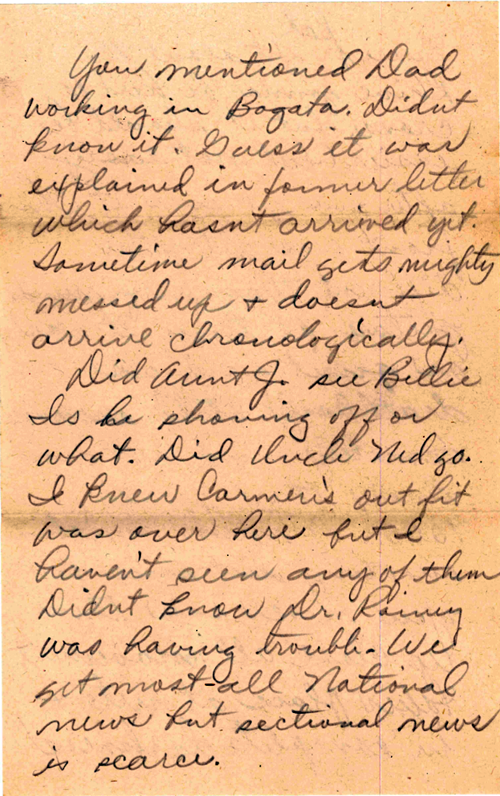 You mentioned Dad
working in Bogata. Didnt
know it. Guess it was
explained in former letter
which hasnt arrived yet.
Sometime mail gets mighty
messed up + doesnt
arrive chronologically.
Did Aunt J. see Billie
Is he showing off or
what. Did Uncle Ned go.
I knew Carmen's outfit
was over here but I
haven't seen any of them
Didnt know Dr. Rainey
was having trouble - We
get most-all National
news but sectional news
is scarce.